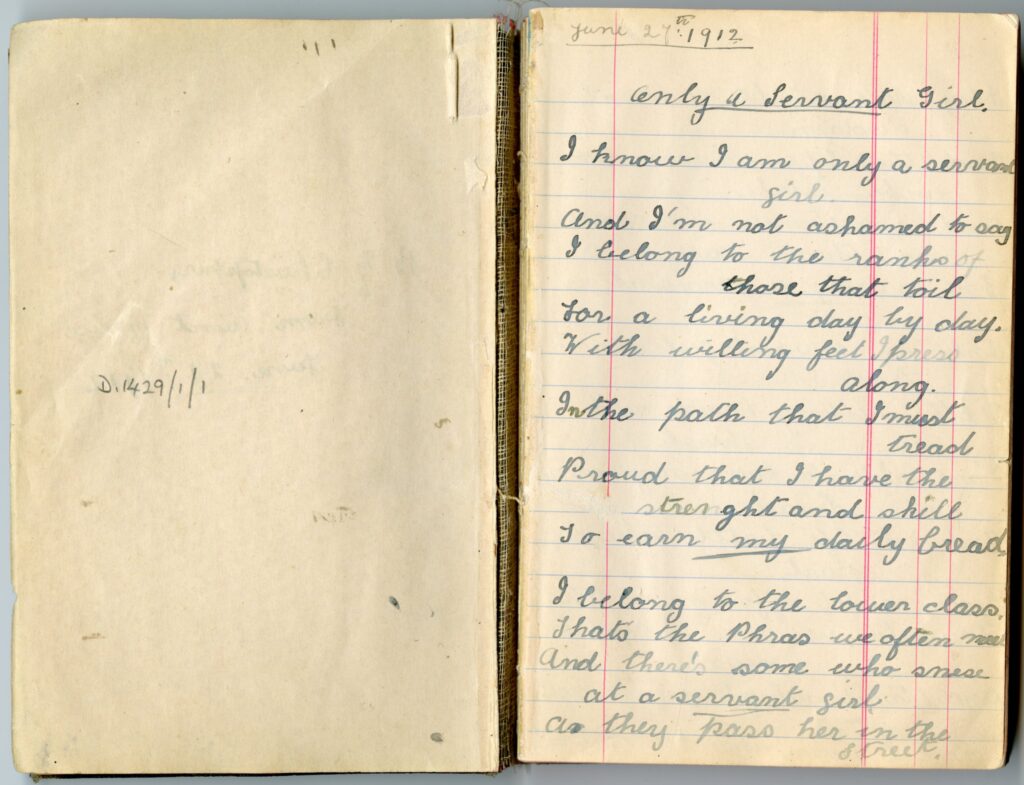 D.1429/1/1
June 27th 1912
Only a Servant Girl.
I know I am only a servant
girl.
And I'm not ashamed to say
I belong to the ranks of
those that toil
For a living day by day.
With willing feet I press
along.
In the path that I must
tread
Proud that I have the
strenght and skill
To earn my daily bread.
I belong to the lower class.
Thats the Phras we often meet
And there's some who snese
at a servant girl
As they pass her in the
Street.